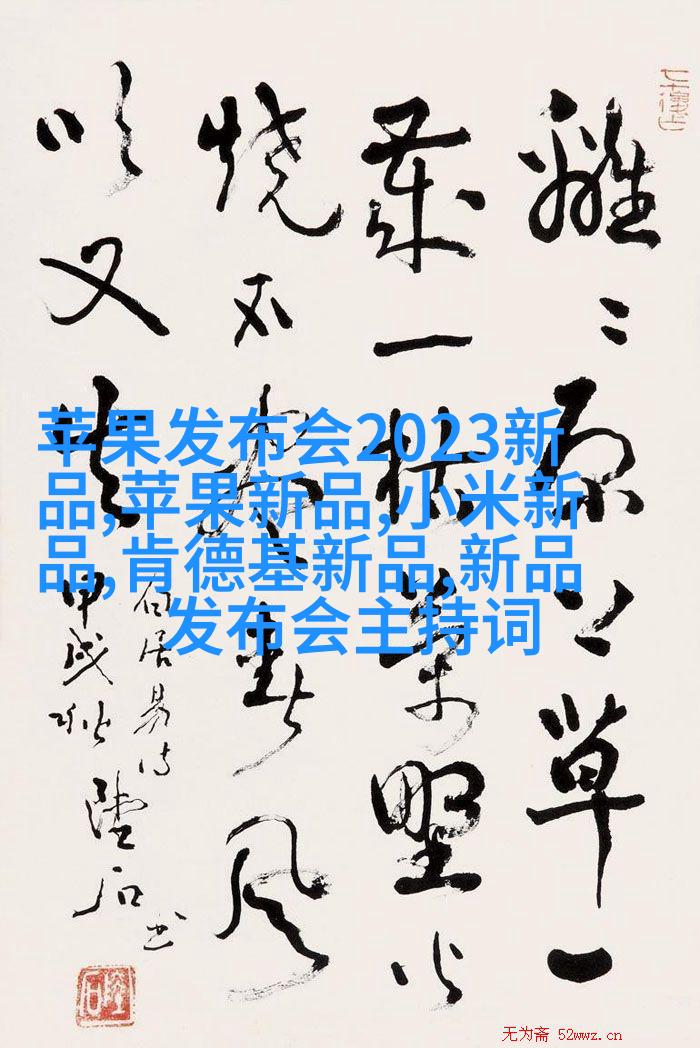 離〻原上草一
歲一枯榮野火
烧不盡春風
吹又生
白居易诗
甲戌秋 陸石书
苹果发布会2023新
品,苹果新品,小米新
品,肯德基新品,新品
发布会主持词
无为斋 52wwz.cn